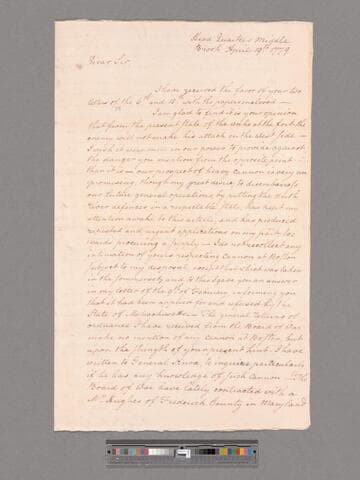 Head Quarters Middle
Brook April 19th 1779
Dear Sir
I have received the favor of your two
letters of the 5th and 12th with the papers enclosed —
I am glad to find it is your opinion
that from the present state of the works at the fort the
enemy will not make his attack on the West side —
I wish it were more in our power to provide against
the danger you mention from the opposite point —
than it is — our prospect of heavy cannon is very un
promising, though my great desire, to disembarrass
our future general operations by putting the North
River defences in a respectable state, has kept my
attention awake to this article, and has produced
repeated and urgent applications on my part to
wards procuring a supply — I do not recollect any
intimation of yours respecting Cannon at Boston
subject to my disposal, except that which was taken
in the and to this I gave you an answer
in my letter of the 9th of informing you
that it had been applied for and refused by the
State of Massachusetts — The general returns of
ordnance I have received from the Board of War
make no mention of any cannon at Boston, but
upon the strength of your present hint I have
written to General Knox, to inquire particularly
if he has any knowledge of such Cannon — The
Board of War have lately contracted with a
Mr Hughes of Frederick County in Maryland